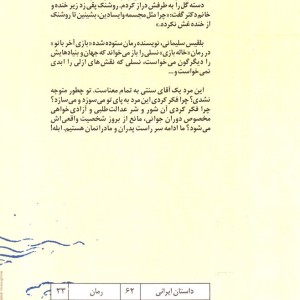 دسته گل را به طرفش دراز کردم. روشنک پقی زد زیر خنده و
خانم دکتر گفت: «چرا مثل مجسمه وایسادین، بشینین تا روشنک
از خنده غش نکرده.»
بلقیس سلیمانی، نویسنده رمان ستوده شده «بازی آخر بانو»
در رمان «خاله بازی» نسلی را باز می‌خواند که جهان و بنیادهایش
را دیگرگون می‌خواست، نسلی که نقش‌های ازلی را ابدی
نمی‌خواست و...
این مرد یک آقای سنتی به تمام معناست. تو چطور متوجه
نشدی؟ چرا فکر کردی این مرد به پای تو می‌سوزد و می‌سازد؟
چرا فکر کردی آن شور و شر عدالت‌طلبی و آزادی‌خواهی
مخصوص دوران جوانی، مانع از بروز شخصیت واقعی‌اش
می‌شود؟ ما ادامه سر راست پدران و مادرانمان هستیم. ابله!
داستان ایرانی ۶۲ رمان ۳۳